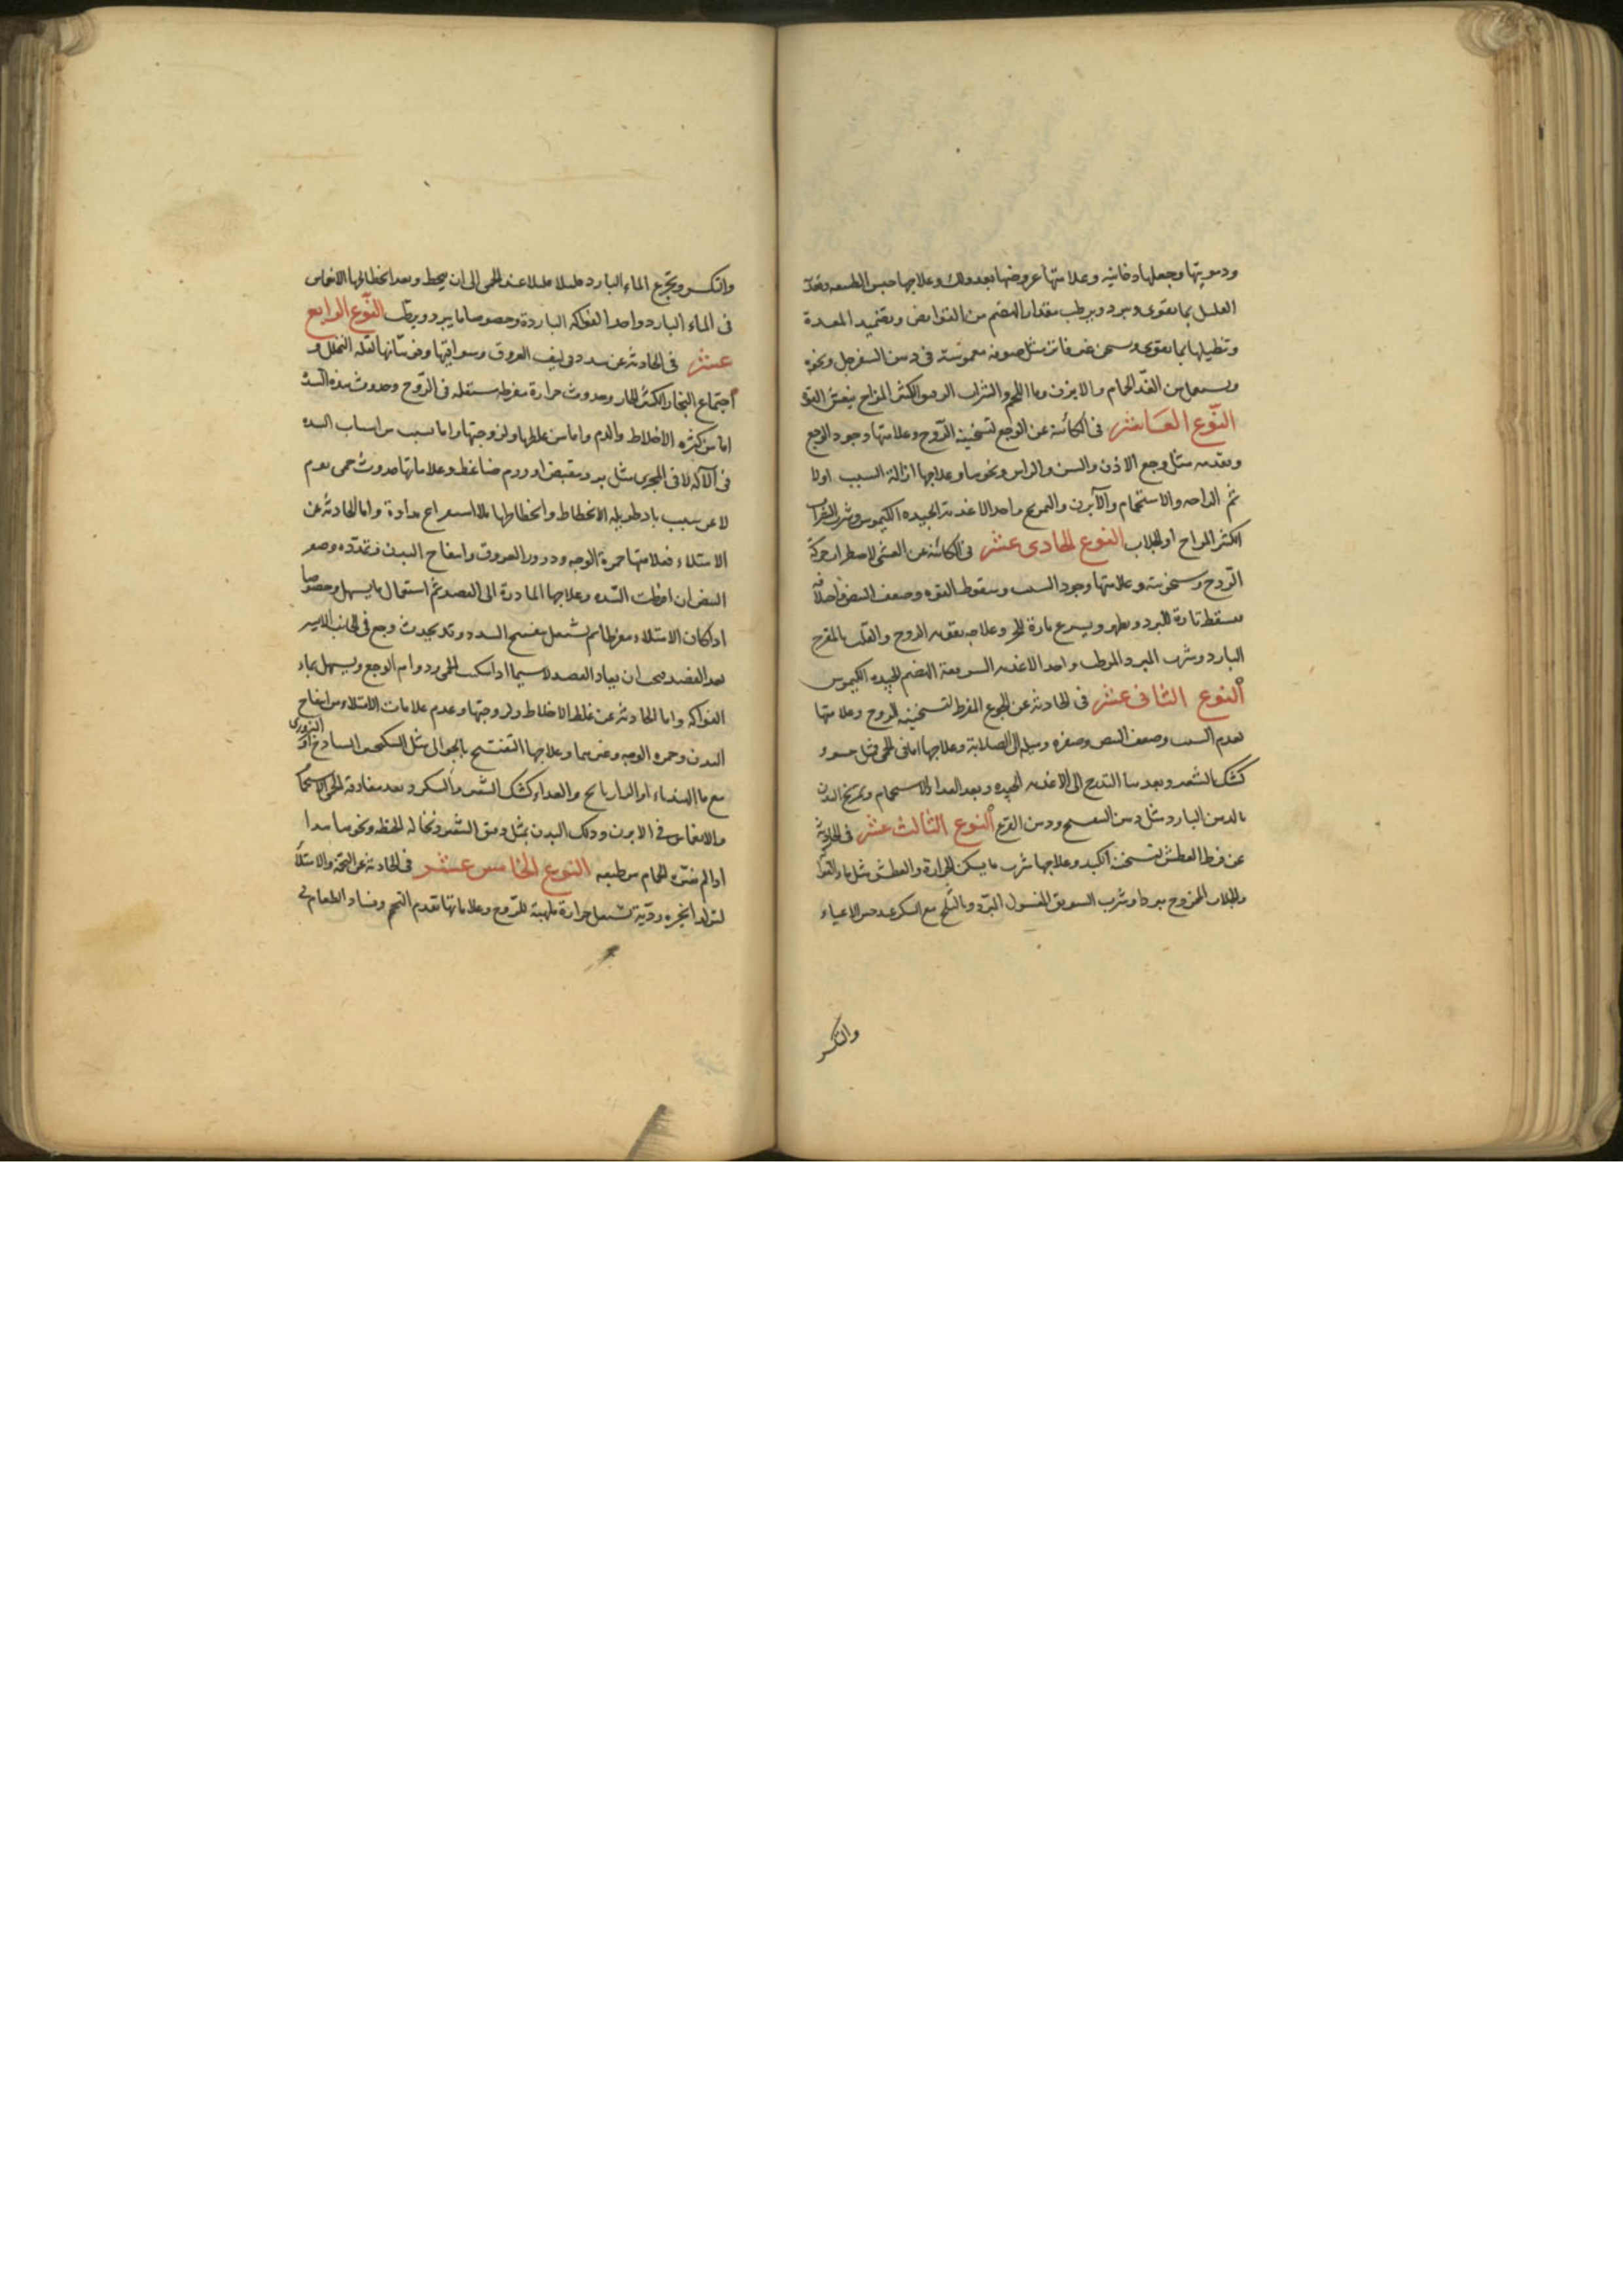 ودهنيتها وجعلها دخانيه وعلامتها عروضها بعد ذلك وعلاجها حبس الطبيعه وتغذيه
العليل بما يقوى ويبرد ويرطب مقدار الهضم من القوابض وتضميد المعدة
وتطيلها بما يقوى ويسخن غير فاتر مثل صوفه مغموسة فى دهن السفرجل ونحوه
ويستعمل من الغد الحمام والابزن وما اللحم والشراب الكثير المزاج ينعش القوة
النوع العاشر فى الكائنة عن الوجع لتسخينه الروح وعلامتها وجود الوجع
وتقدمه مثل وجع الاذن والسن والراس ونحوها وعلاجها ازالة السبب اولا
ثم الراحه والاستحمام والآبزن والتمريخ واخذ الاغذية الجيده الكيموس وشرب الشراب
الكثير المزاج او الجلاب النوع الحادى عشر فى الكائنة عن الغشى لاضطراب حركة
الروح وسخونته وعلامتها وجود السبب وسقوط القوه وضعف النبض واختلافه
فيسقط تارة للبرد ويظهر ويسرع تارة للحر وعلاجه تقويه الروح والقلب بالمفرح
البارد وشرب المبرد المرطب واخذ الاغذيه السريعة الهضم الجيده الكيموس
النوع الثانى عشر فى الحادثة عن الجوع المفرط لتسخينه الروح وعلامتها
تقدم السبب وضعف النبض وصغره وميله الى الصلابة وعلاجها اما فى الحمى فمثل حسو
كشك الشعير وبعدها التدرج الى الاغذيه الجيده وبعد الغذا والاستحمام وتمريخ البدن
بالدهن البارد مثل دهن البنفسج ودهن القرع النوع الثالث عشر فى الحادثة
عن فرط العطش لتسخنه الكبد وعلاجها شرب ما يسكن الحرارة والعطش مثل ماء القرع
والجلاب الممزوج مبردا وشرب السويق المغسول المبرد بالثلج مع السكر
والسكر
والسكر وتجرع الماء البارد قليلا قليلا عند الحمى الى ان ينحط وبعد انحطاطها الانغماس
فى الماء البارد واخذ الفواكه الباردة وخصوصا ما يبرد ويرطب النوع الرابع
عشر فى الحادثة عن سدد فى ليف العروق وسواقيها وفوهاتها لقلة التحلل و
اجتماع البخار الكثير الحار وحدوث حرارة مفرطه مشتعله فى الروح وحدوث هذه السدة
اما من كثره الاخلاط والدم واما من غلظها ولزوجتها واما بسبب من اسباب السده
فى الآله لا فى المجرى مثل برد مقبض او ورم ضاغط وعلاماتها حدوث حمى يوم
لا عن سبب باد طويله الانحطاط وانحطاطها بلا استفراغ نداوة واما الحادثة عن
الامتلاء فعلامتها حمرة الوجه ودرور العروق وانتفاخ البدن وتمدده وصغر
النبض ان افرطت السده وعلاجها المبادرة الى الفصد ثم استعمال ما يسهل وخصوصا
اذا كان الامتلاء مفرطا ثم يشتغل بتفتيح السدد وقد يحدث وجع فى الجانب الايسر
بعد الفصد فيجب ان يعاد الفصد لا سيما اذا سكنت الحمى ودوام الوجع ويسهل بماء
الفواكه واما الحادثة عن غلظ الاخلاط ولزوجتها وعدم علامات الامتلاء من انتفاخ
البدن وحمره الوجه وغيرهما وعلاجها التفتيح بالجوالى مثل السكنجبين الساذج او البزورى
مع ما الهندباء او الرازيانج والغداء كشك الشعير والسكر وبعد مفارقة الحمى الاستحمام
والانغماس فى الابزن ودلك البدن بمثل دقيق الشعير ونخالة الحنطه ونحوهما
اذا لم متره الحمام من طبيعه النوع الخامس عشر فى الحادثة عن التخمة والامتلاء
لتولد ابخره رديّة تشتعل حرارة ملهبة للروح وعلاماتها تقدم التخم وفساد الطعام فى